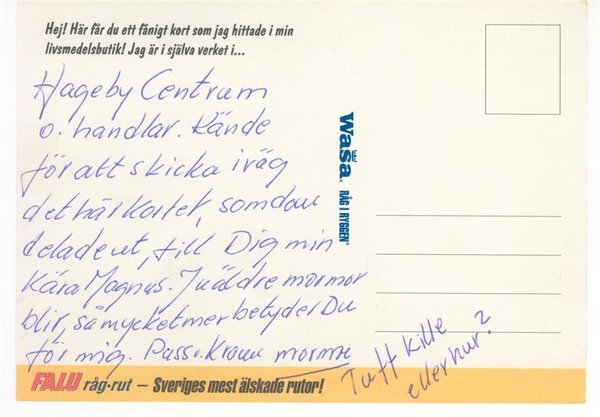 Hej! Här får du ett fånigt kort som jag hittade i min
livsmedelsbutik! Jag är i själva verket i...
Hageby Centrum
o. handlar. Kände
för att skicka iväg
det här kortet, som dom
delade ut, till Dig min
Kära Magnus. Ju äldre mormor
blir, så mycket mer betyder Du
för mig. Puss o. Kram mormor
Tuff kille
eller hur?
Wasa
RÅG I RYGGEN
FALU råg-rut – Sveriges mest älskade rutor!